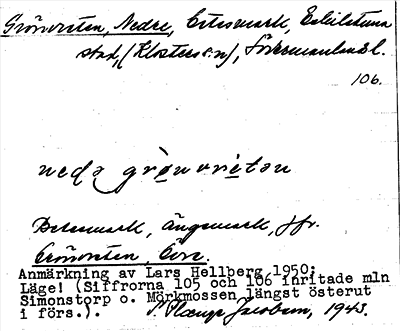 Grönvreten, Nedre, betesmark, Eskilstuna
stad, (Klosters sn), Södermanlands l.
106.
nedɘ grònvrètɘn
Betesmark, ängsmark, jfr.
Grönvreten, Övre.
Anmärkning av Lars Hellberg 1950:
Läge! (Siffrorna 105 och 106 inritade mln
Simonstorp o. Mörkmossen längst österut
i förs.).
Jacobson, 1943.